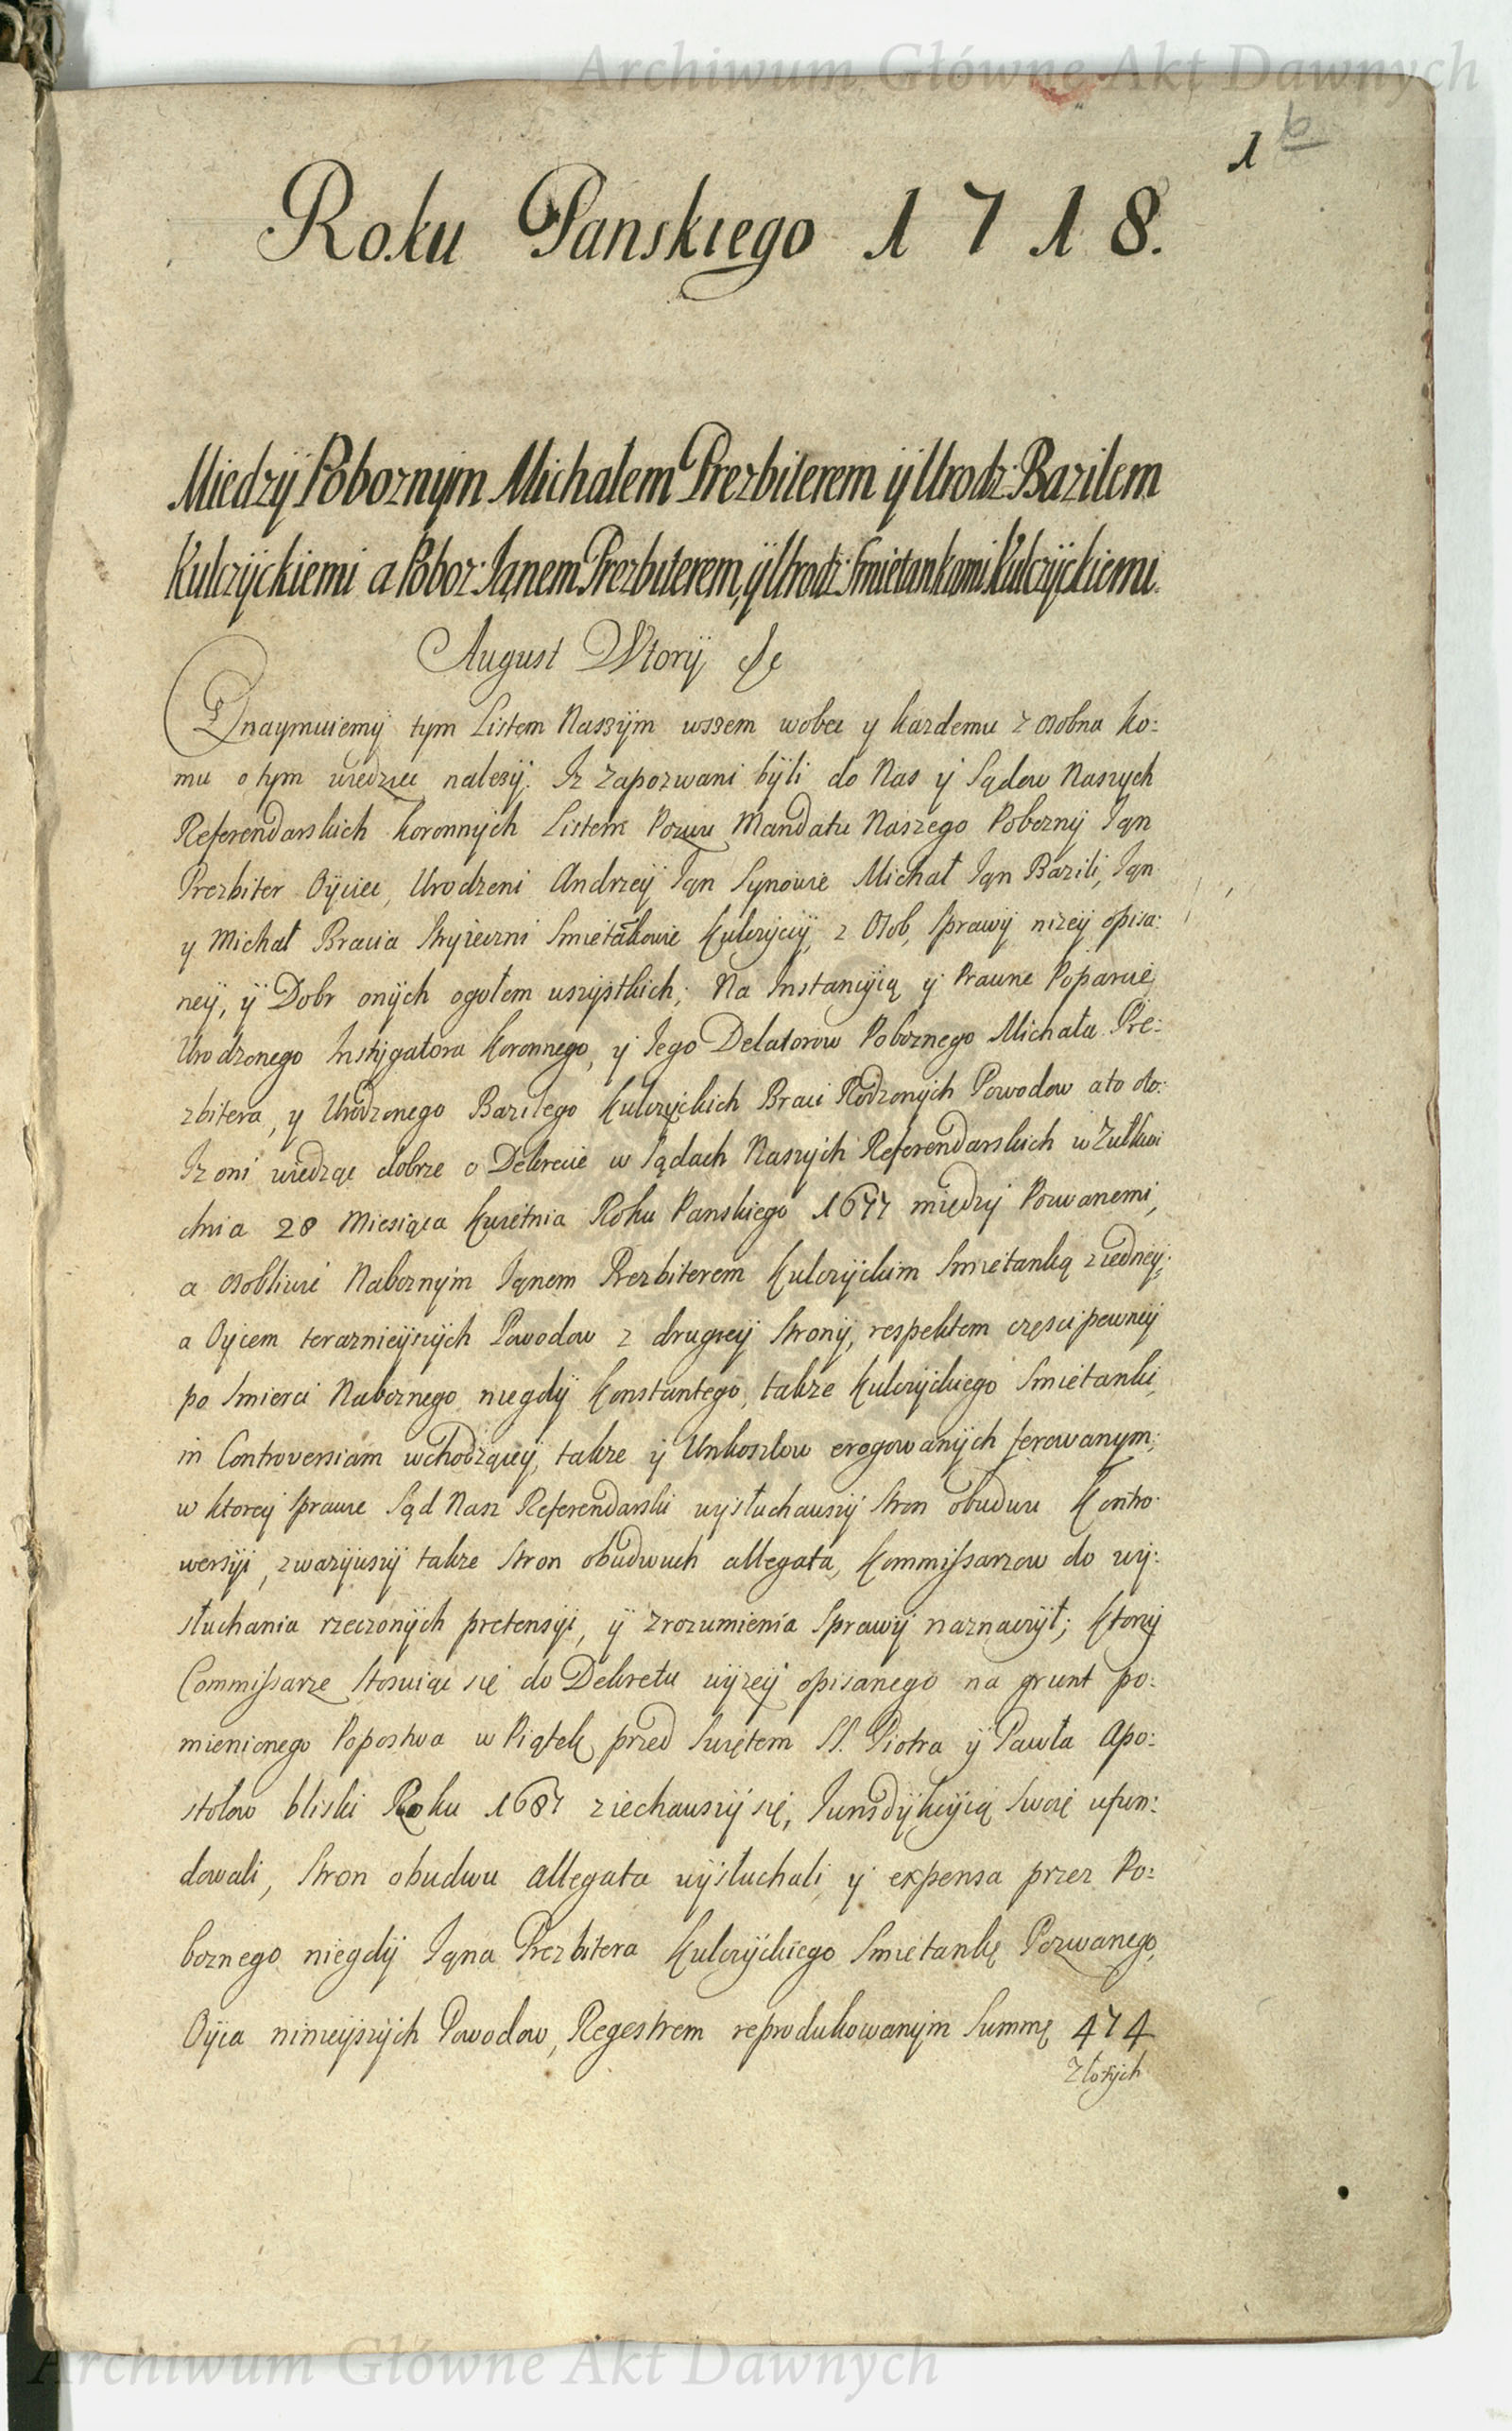 Archiwum Główne Akt Dawnych
1 6
Roku Panskiego 1718.
Miedzÿ Poboznym Michałem Prezbiterem ÿ Urodz: Bazilem
Kulczÿckiemi a Poboz: Janem Prezbiterem, ÿ Urodz: Smietankami Kulczÿckiemi.
August Wtorÿ &c
Oznaymuiemÿ tym Listem Naszÿm wszem wobec y kazdemu z osobna ko:
mu o tym wiedziec nalezÿ. Iz zapozwani bÿli do Nas ÿ Sądow Naszych
Referendarskich koronnÿch Listem Pozwu Mandatu Naszego Poboznÿ Jan
Prezbiter Oÿciec, Urodzeni Andrzeÿ Jan Synowie Michał Jan Bazili, Jan
y Michał Bracia Stryieczni Smietākowie Kulczÿcÿ, z Osob, Sprawÿ nizeÿ opisa:
neÿ, ÿ Dobr onÿch ogołem wszÿstkich; Na Instancÿią ÿ Prawne Poparcie
Urodzonego Instÿgatora koronnego, ÿ Jego Delatorow Poboznego Michała Pre:
zbitera, y Urodzonego Bazilego Kulczÿckich Braci Rodzonÿch Powodow ato oto:
Iz oni wiedząc dobrze o Dekrecie w Sądach Naszÿch Referendarskich w Zułkwi
dnia 28 Miesiąca Kwietnia Roku Panskiego 1677 międzÿ Pozwanemi,
a osobliwie Naboznÿm Janem Prezbiterem Kulczÿckim Smietanką z iedneÿ;
a Oÿcem teraznieÿszÿch Powodow z drugieÿ Stronÿ, respektem częsci pewneÿ
po Smierci Naboznego niegdÿ Konstantego, takze Kulczÿckiego Smietanki
in Controversiam wchodząceÿ, takze ÿ Unkosztow erogowanÿch ferowanym;
w ktoreÿ Sprawie Sąd Nasz Referendarski wysłuchawszÿ Stron obudwu Kontro:
wersÿi, zwazÿwszÿ takze Stron obudwuch allegata, Kommissarzow do wÿ:
słuchania rzeczonÿch pretensÿi, ÿ zrozumienia Sprawÿ naznaczÿł; Ktorzÿ
Commissarze Stosuiąc się do Dekretu wÿzeÿ opisanego na grunt po:
mienionego Popostwa w Piątek przed Swiętem SS. Piotra ÿ Pawła Apo:
stołow bliski Roku 1687 ziechawszÿ się, Jurisdÿkcÿią Swoię ufun:
dowali, Stron obudwu allegata wÿsłuchali ÿ expensa przez Po:
boznego niegdÿ Jana Prezbitera Kulczÿckiego Smietankę Pozwanego,
Oÿca ninieÿszÿch Powodow, Regestrem reprodukowanÿm Summę 474
Złotÿch
Archiwum Główne Akt Dawnych